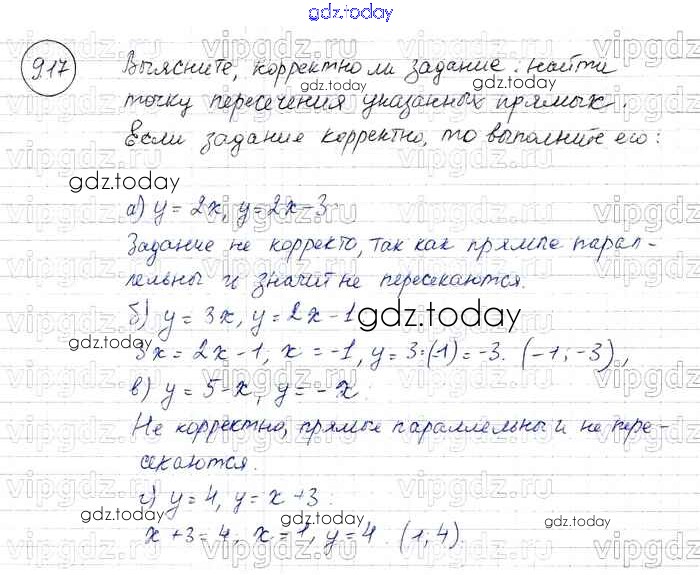 gdz.today
917
Выясните, корректно ли задание: найти
точку пересечения указанных прямых.
Если задание корректно, то выполните его:
gdz.today
а) y = 2x, y = 2x - 3:
Задание не корректо, так как прямые парал-
лельны и значит не пересекаются.
б) y = 3x, y = 2x - 1
gdz.today
gdz.today
3x = 2x - 1, x = -1, y = 3·(-1) = -3. (-1; -3),
в) y = 5 - x, y = - x:
Не корректно, прямые параллельны и не пере-
секаются.
г) y = 4, y = x + 3:
gdz.today
gdz.today
x + 3 = 4, x = 1, y = 4. (1; 4).
vipgdz.ru